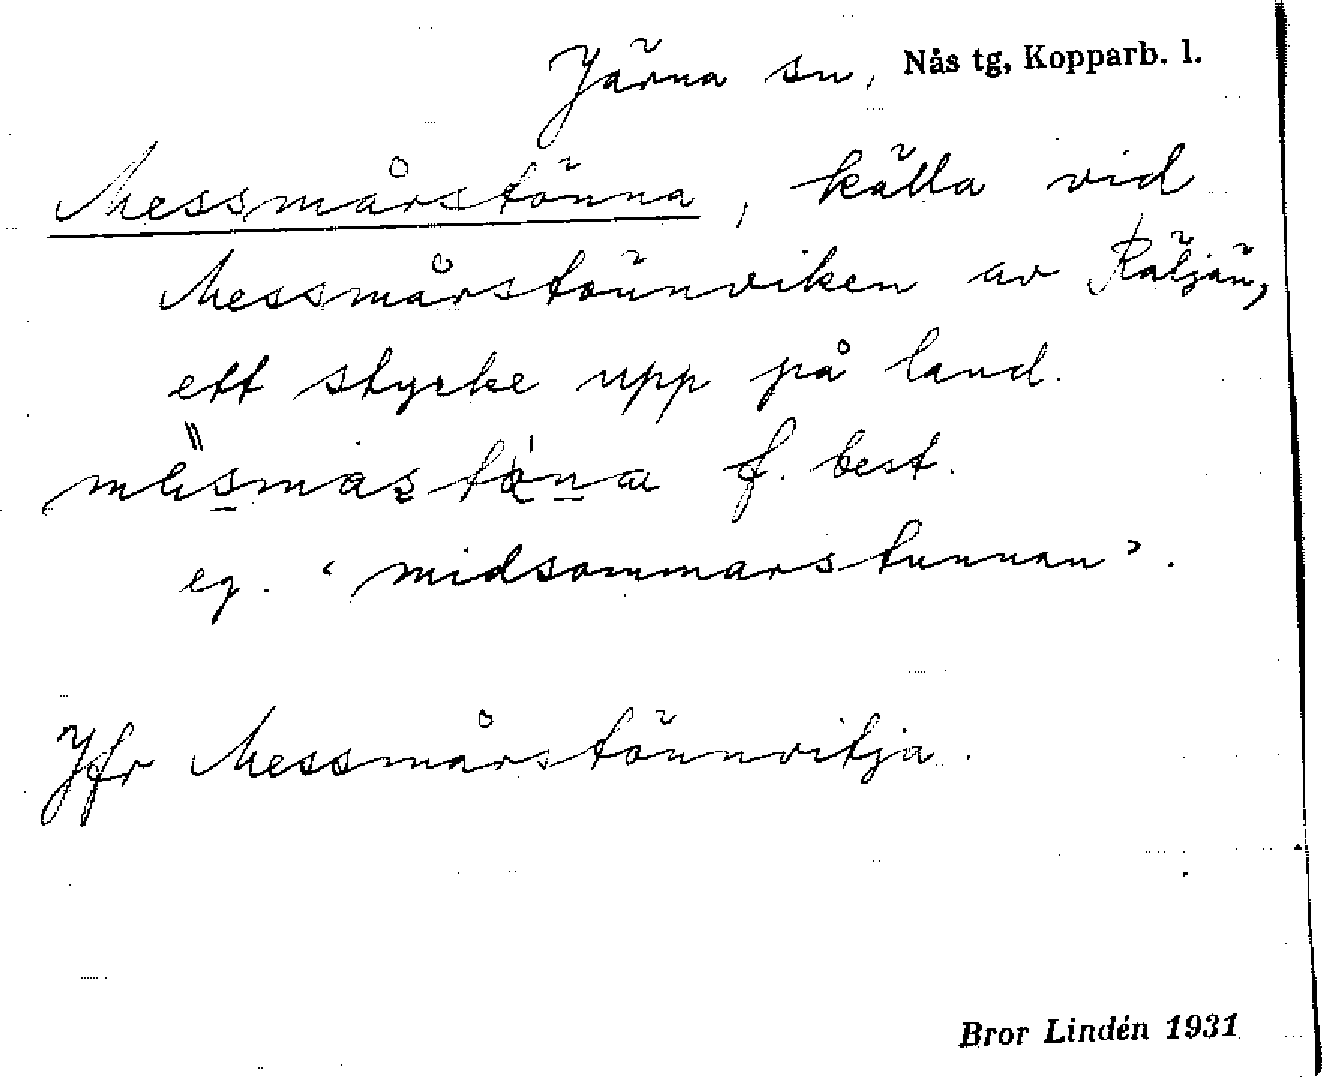 Järna sn, Nås tg, Kopparb. l.
Messmårstönna, källa vid
Messmårstönnviken av Räljän,
ett stycke upp på land.
f. best.
eg. ‘midsommarstunnan’.
Jfr Messmårstönnvitja.
Bror Lindén 1931